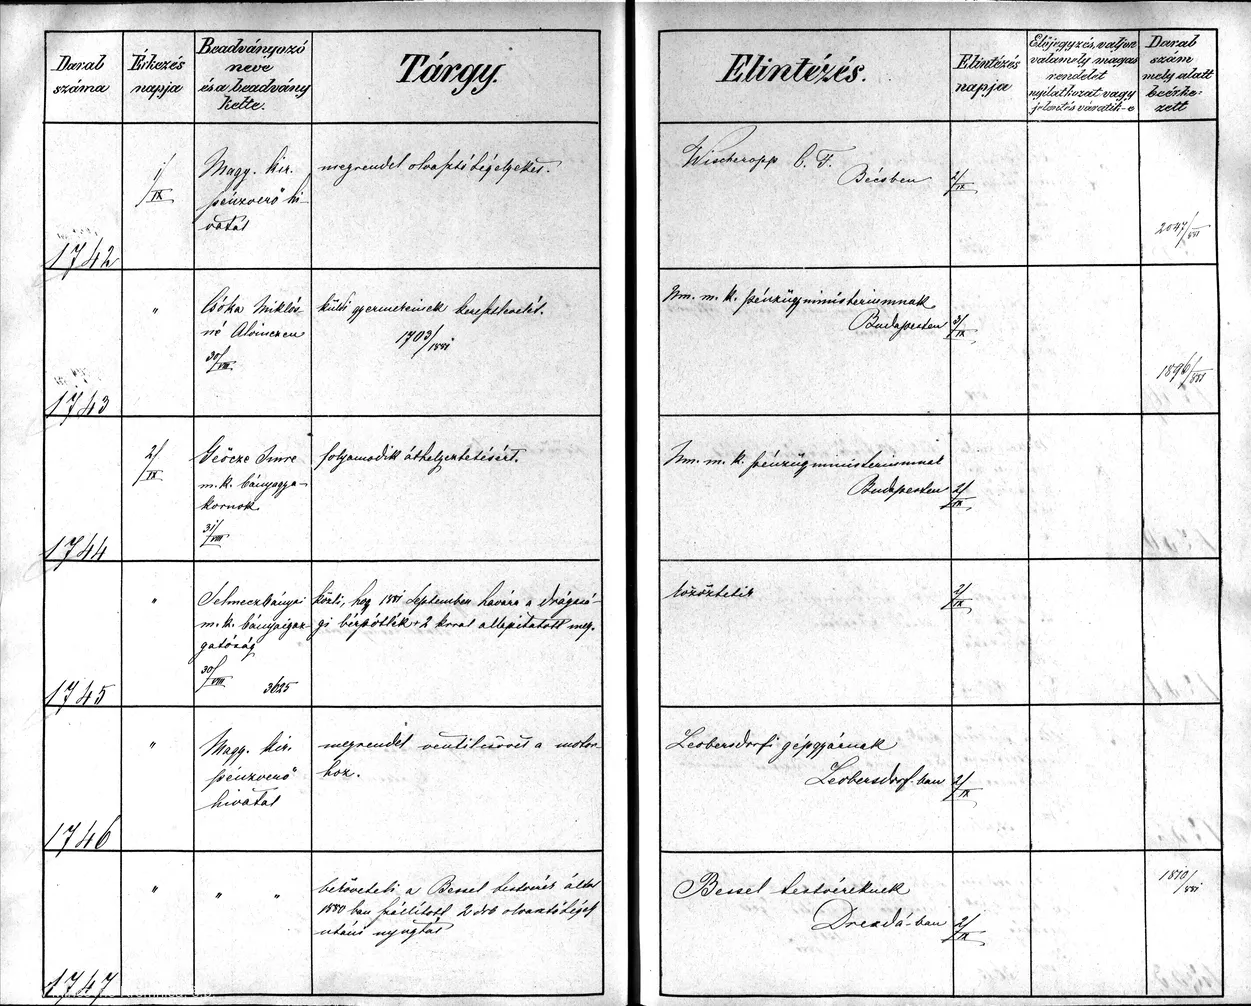 Darab száma
Érkezés napja
Beadványozó neve és a beadvány kelte.
Tárgy.
Elintézés.
Elintézés napja
Előjegyzés, valjon valamely magas rendelet nyilatkozat vagy jelentés váratik-e
Darab szám mely alatt beérkezett
1742
1/IX
Magy. kir.
pénzverő hi-
vatal
megrendel olvasztó tégelyeket.
Bécsben
2/IX
2047/881
1743
"
Csóka Miklós-
né Alvinczen
30/VIII
küldi gyermekeinek keresztlevelét.
1703/1881
Nm. m. k. pénzügyministeriumnak
Budapesten
3/IX
1896/881
1744
2/IX
Geőcze Imre
m. k. bányagya-
kornok
31/VIII
folyamodik áthelyeztetéseért.
Nm. m. k. pénzügyministeriumnak
Budapesten
2/IX
1745
"
Selmeczbányai
m. k. bányaigaz-
gatóság
30/VIII 3625
közli, hogy 1881 September havára a drágasá-
gi bérpótlék 2 krral állapitatott meg.
köröztetik
2/IX
1746
"
Magy. kir.
pénzverő
hivatal
megrendel a motor-
hoz.
Leobersdorfi gépgyárnak
Leobersdorf-ban
2/IX
1747
"
" "
beköveteli a Bessel testvérek által
1880 ban szállított 2 drb olvasztó tégel
utáni nyugtát
Bessel testvéreknek
Drezdá-ban
2/IX
1810/881